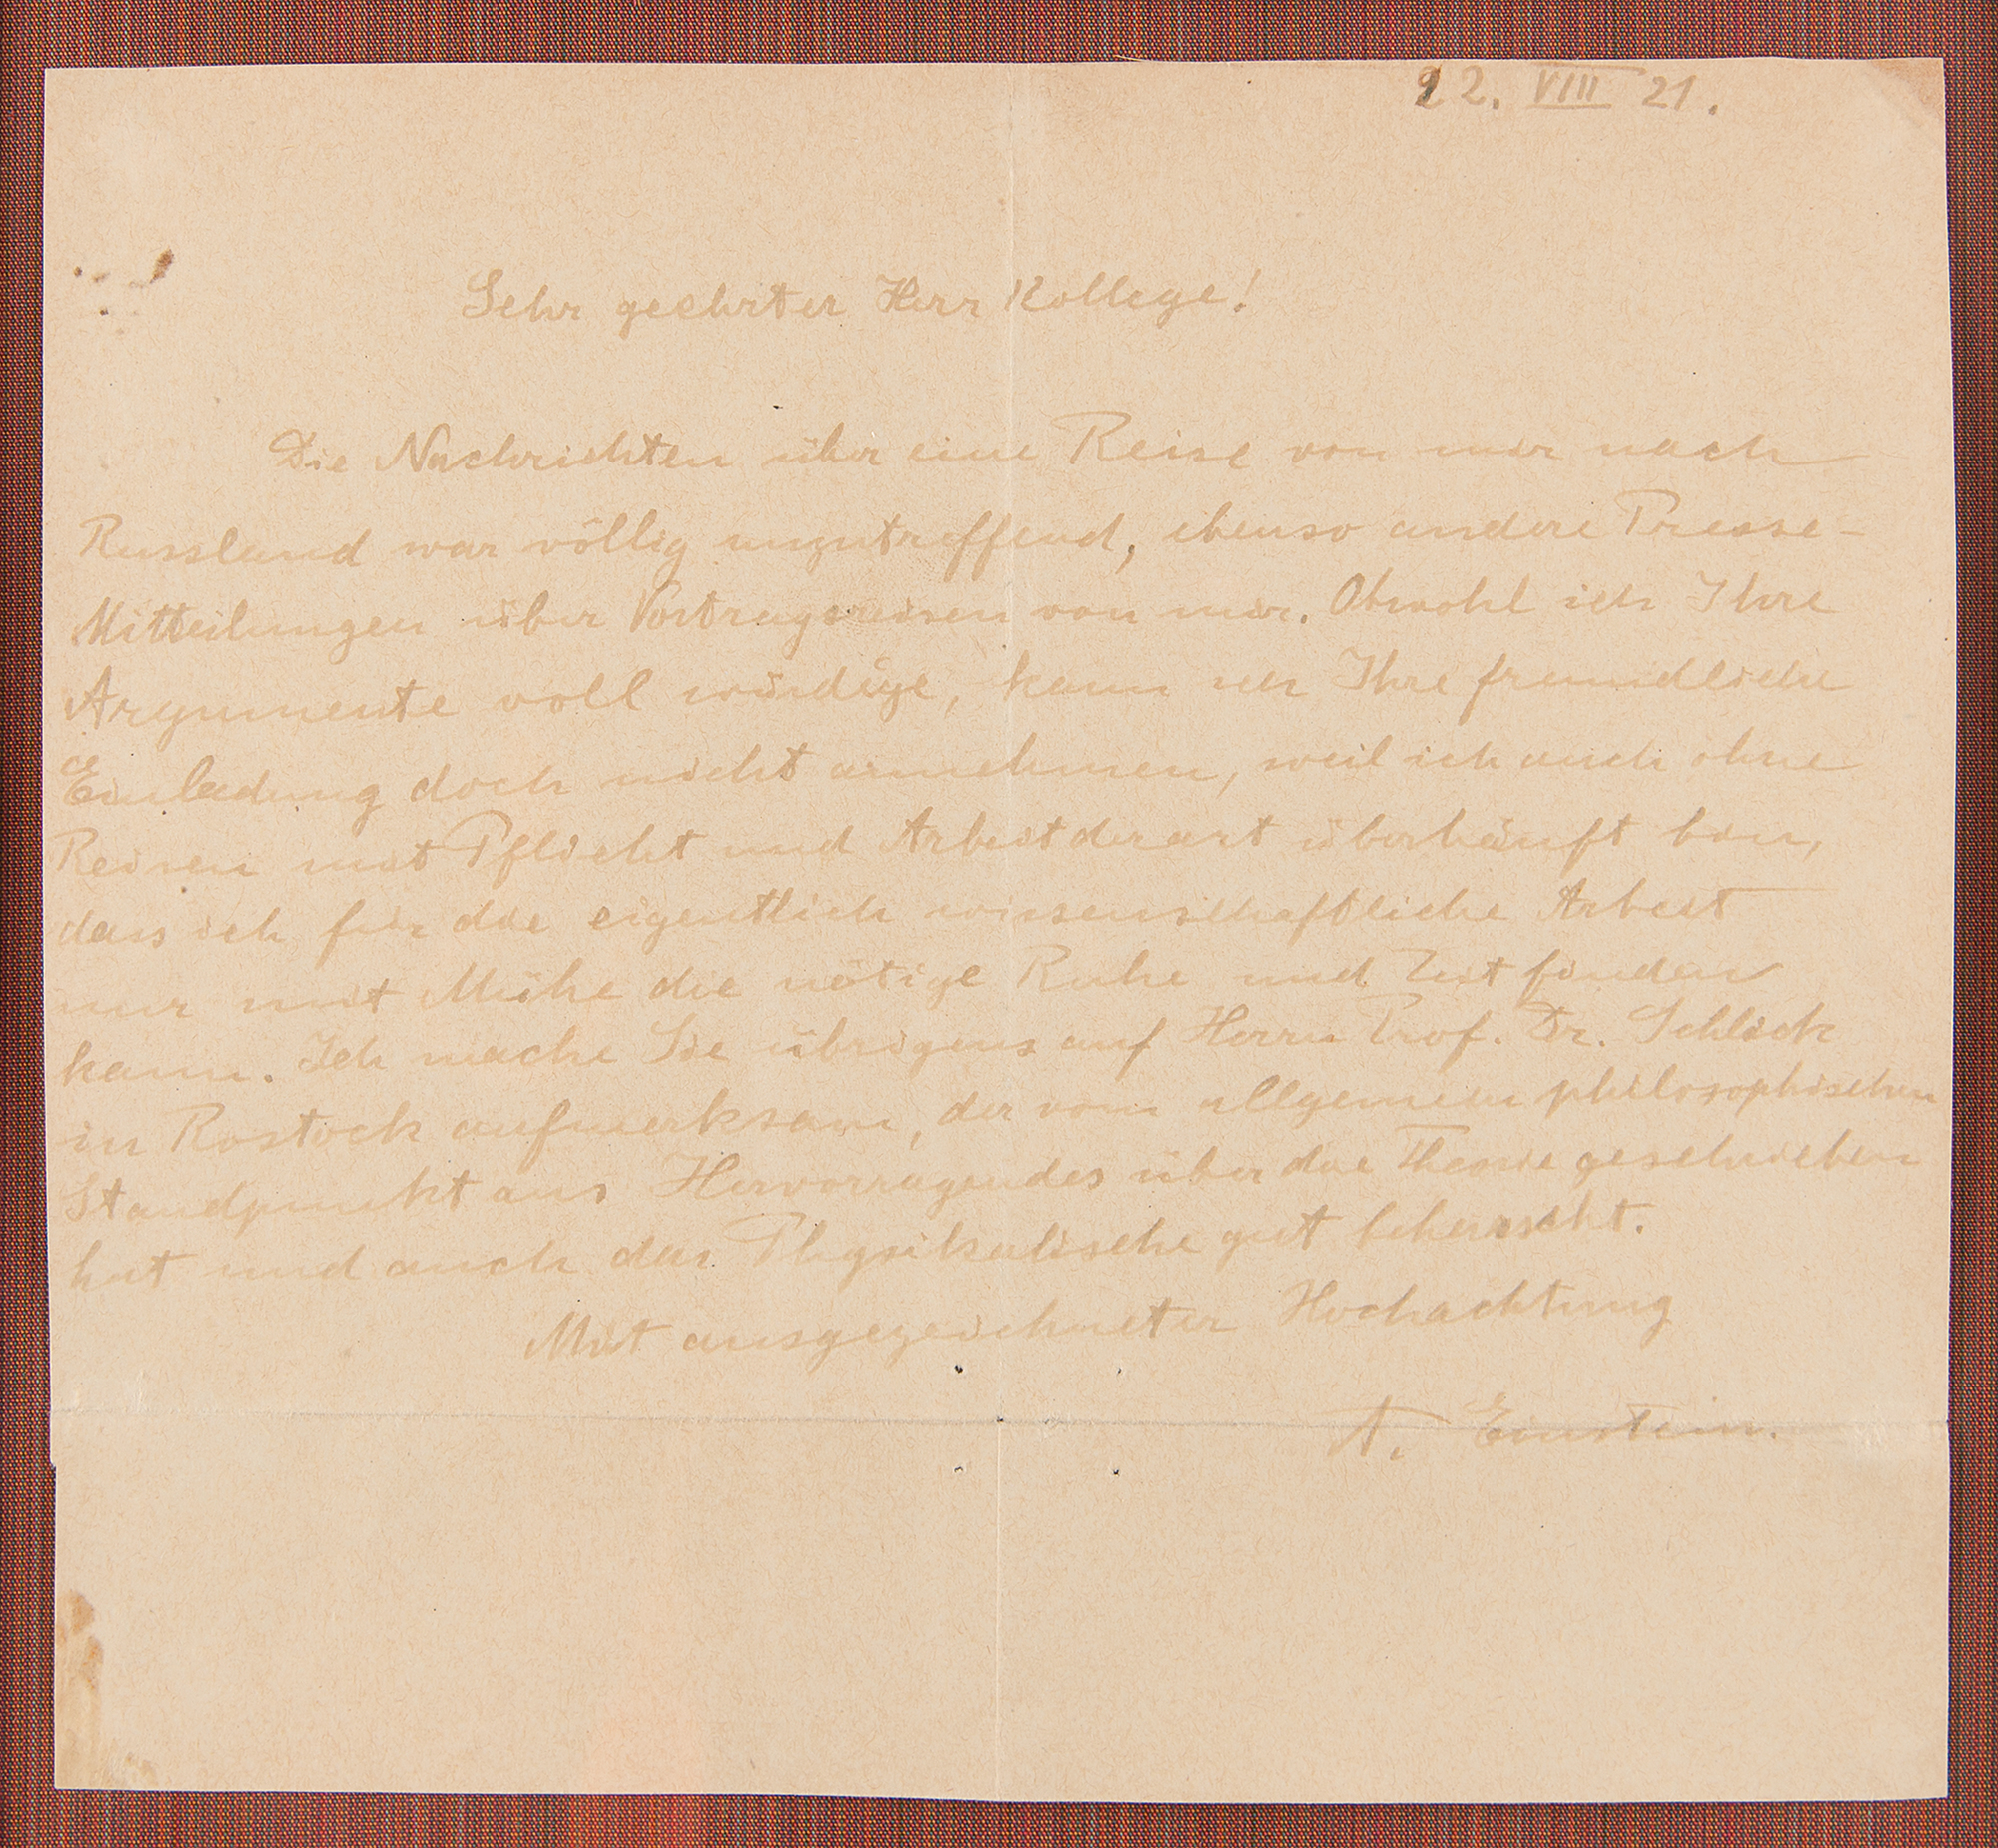 22. VIII 21.
Sehr geehrter Herr Kollege!
Die Nachrichten über eine Reise von mir nach
Russland war völlig unzutreffend, ebenso andere Presse-
Mitteilungen über Vortragsreisen von mir. Obwohl ich Ihre
Argumente voll würdige, kann ich Ihre freundliche
Einladung doch nicht annehmen, weil ich auch ohne
Reisen mit Pflicht und Arbeit derart überhäuft bin,
dass ich für die eigentlich wissenschaftliche Arbeit
nur mit Mühe die nötige Ruhe und Zeit finden
kann. Ich mache Sie übrigens auf Herrn Prof. Dr. Schlick
in Rostock aufmerksam, der vom allgemein philosophischen
Standpunkt aus Hervorragendes über die Theorie geschrieben
hat und auch das Physikalische gut beherrscht.
Mit ausgezeichneter Hochachtung
A. Einstein.